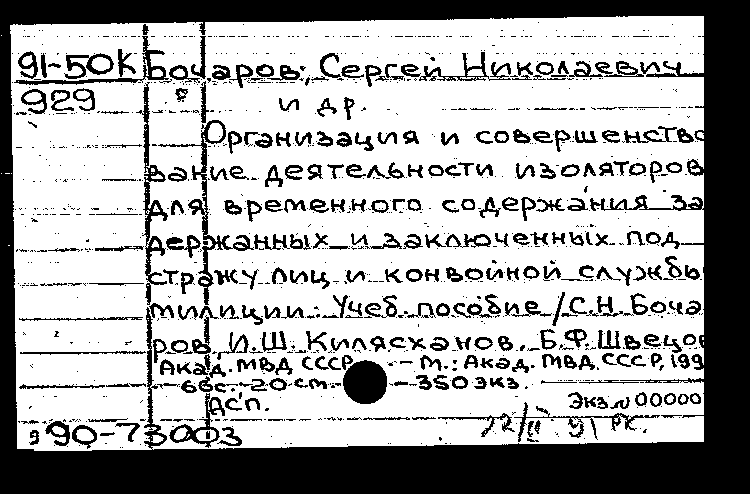 91-50К Бочаров, Сергей Николаевич
929 и др.
Организация и совершенство
вание деятельности изоляторов
для временного содержания за
держанных и заключенных под
стражу лиц и конвойной службы
милиции: Учеб. пособие / С.Н. Боча
ров, И.Ш. Килясханов, Б.Ф. Швецов
Акад. МВД СССР. - М.: Акад. МВД СССР, 199
- 66с. - 20 см. - 350 экз.
ДСП.
Экз. N 00000
9 90-73003
22/II 91 РК.